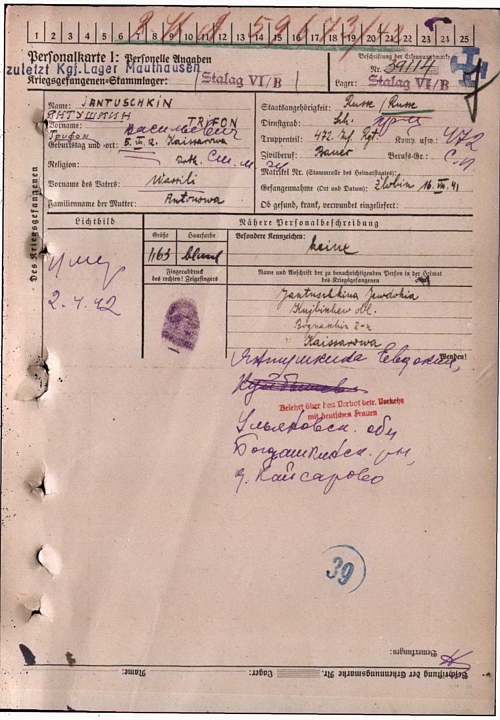 1 2 3 4 5 6 7 8 9 10 11 12 13 14 15 16 17 18 19 20 21 22 23 24 25
Personalkarte I: Personelle Angaben
Beschriftung der Erkennungsmarke
zuletzt Kgf. Lager Mauthausen
Nr. 59114
Kriegsgefangenen-Stammlager: Stalag VI/B
Lager: Stalag VI/B
Des Kriegsgefangenen
Name: JANTUSCHKIN
ЯНТУШКИН
Vorname: TRIFON
Трифон Васильевич
Geburtstag und -ort: Kaissarowa
Religion:
Vorname des Vaters: Wassili
Familienname der Mutter: Antonowa
Staatsangehörigkeit: Russe / Russe
Dienstgrad:
Truppenteil: 472. Inf. Rgt. Komp. usw.: 472
Zivilberuf: Bauer Berufs-Gr.:
Matrikel Nr. (Stammrolle des Heimatstaates):
Gefangennahme (Ort und Datum): Zlobin 16. VII. 41
Ob gesund, krank, verwundet eingeliefert:
Lichtbild
Nähere Personalbeschreibung
Größe Haarfarbe Besondere Kennzeichen:
1,63 blond keine
Fingerabdruck
des rechten! Zeigefingers
Name und Anschrift der zu benachrichtigenden Person in der Heimat
des Kriegsgefangenen
Jantuschkina Jewdokia
Kujbischew obl.
Kaissarowa
умер
2.4.42
Wenden!
Янтушкина Евдокия,
Belehrt über das Verbot betr. Verkehr
mit deutschen Frauen
Ульяновск. обл
Богдашкинск. рн,
д. Кайсарово
39
Bemerkungen:
Beschriftung der Erkennungsmarke Nr. Lager: Name: